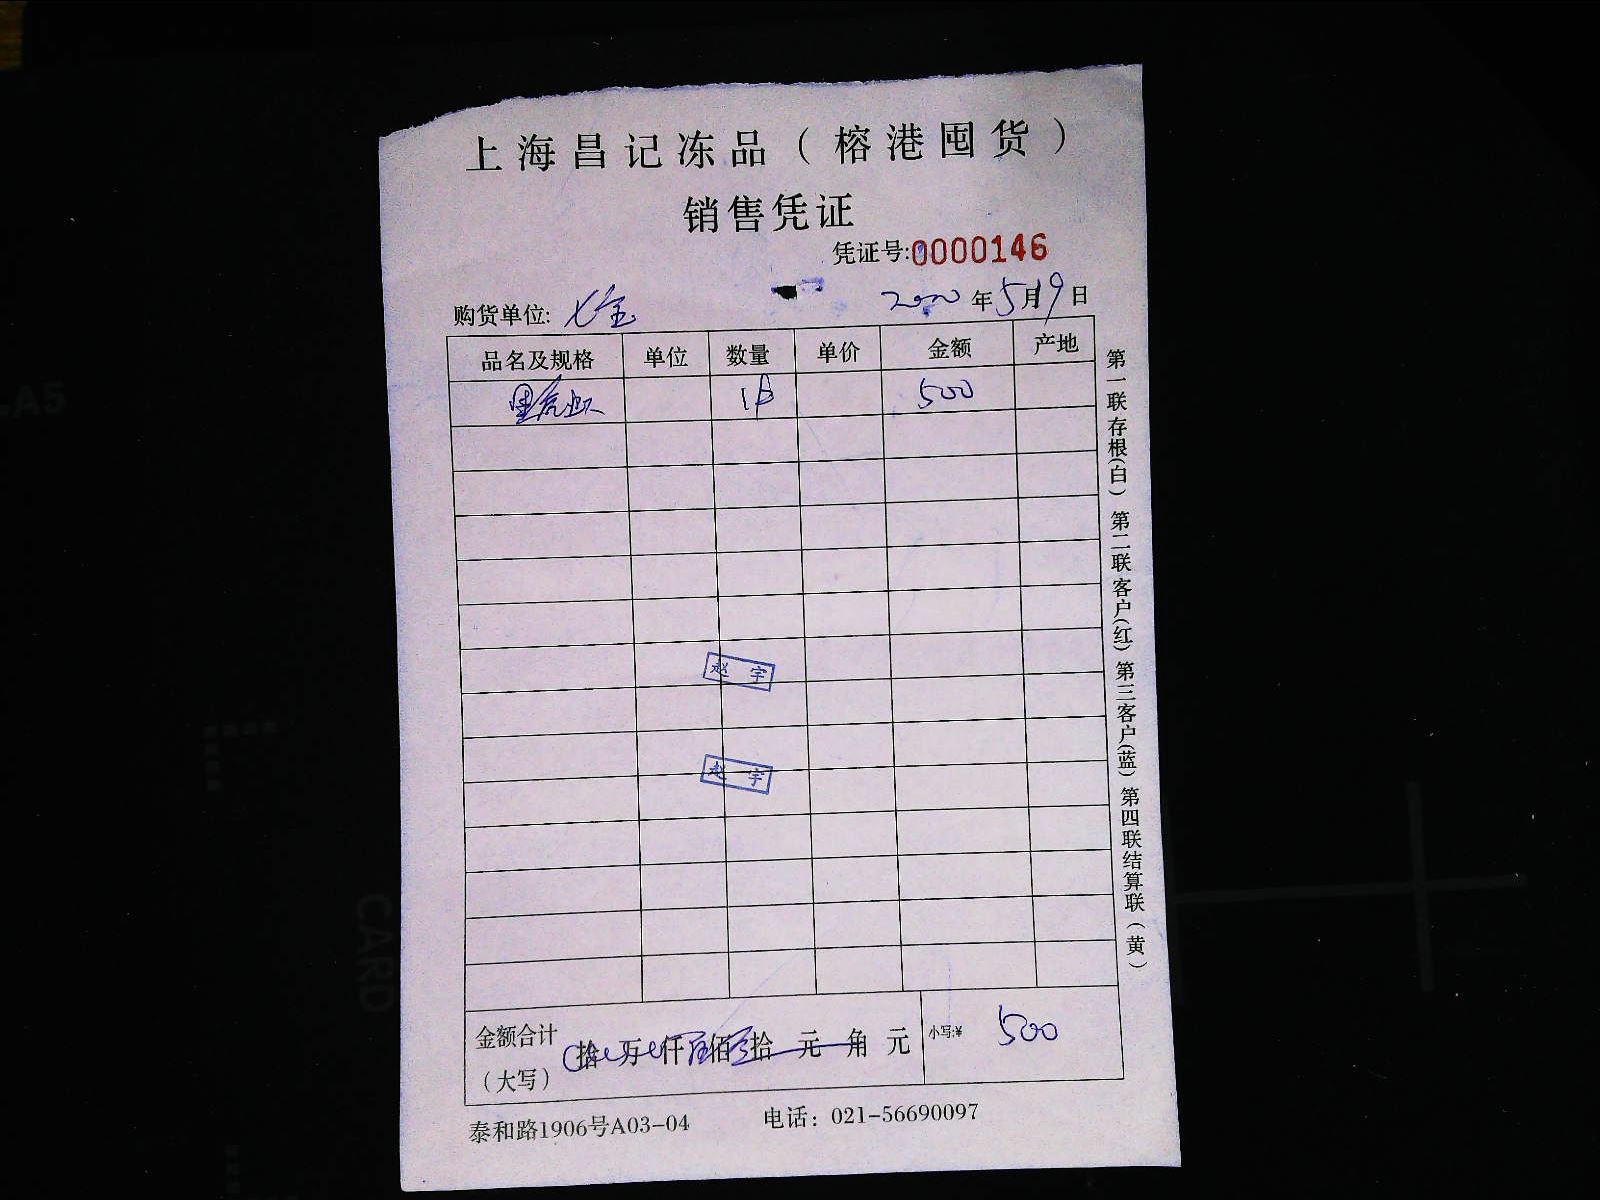 上海昌记冻品（榕港囤货）
销售凭证
凭证号:0000146
购货单位: 七宝 2020年5月19日
品名及规格 单位 数量 单价 金额 产地
黑虎虾 1 500
赵宇
赵宇
金额合计 拾 万 仟 伍佰 拾 元 角 元 小写:¥ 500
（大写）
泰和路1906号A03-04 电话：021-56690097
第一联存根(白) 第二联客户(红) 第三客户(蓝) 第四联结算联（黄）
-A5
CARD